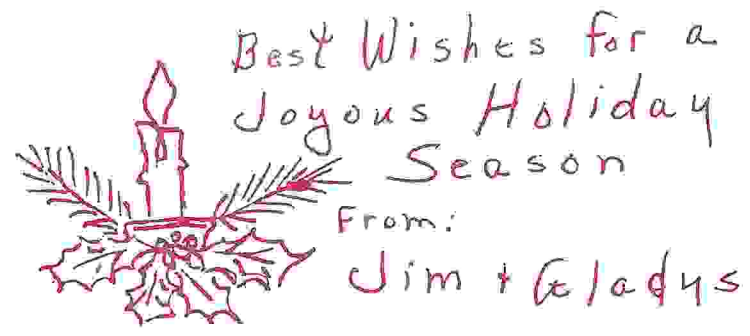 Best Wishes for a
Joyous Holiday
Season
From:
Jim + Gladys